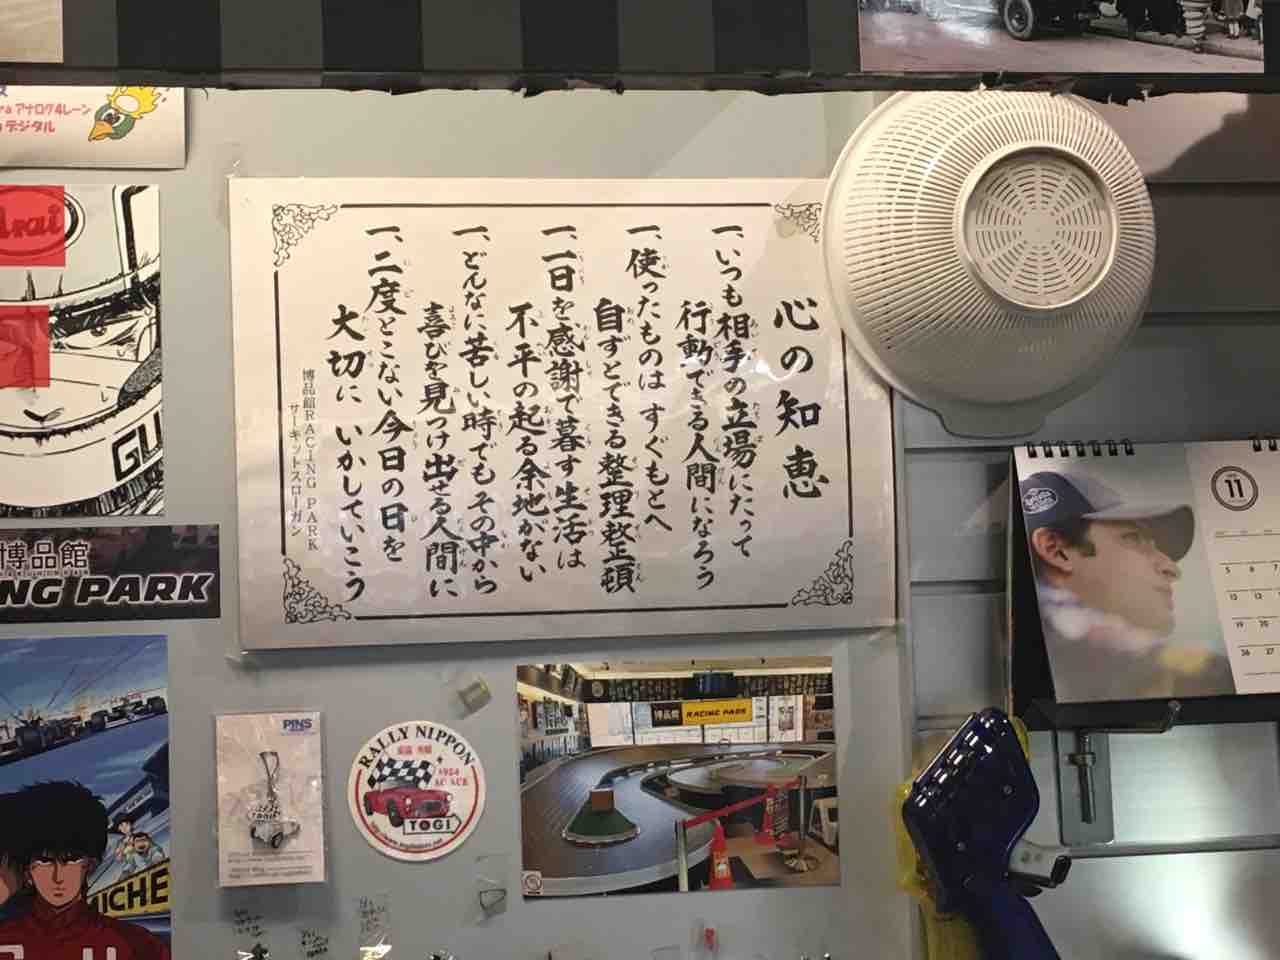 心の知恵
一、いつも相手の立場にたって
行動できる人間になろう
一、使ったものは すぐもとへ
自ずとできる整理整頓
一、一日を感謝で暮す生活は
不平の起る余地がない
一、どんなに苦しい時でもその中から
喜びを見つけ出せる人間に
一、二度とこない今日の日を
大切に いかしていこう
博品館RACING PARK
サーキットスローガン
アナログ4レーン
デジタル
Arai
GU
博品館
NG PARK
MICHE
PINS
RALLY NIPPON
1954
AC ACE
TOGI
博品館
RACING PARK
11
5 6 7
12 13
19 20
26 27